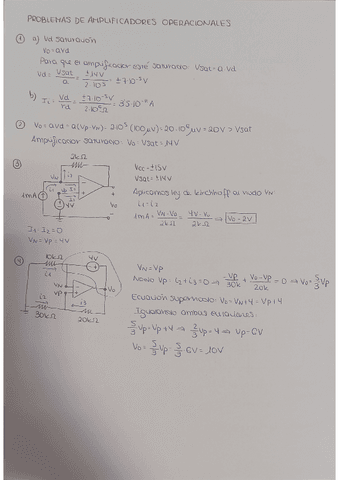 PROBLEMAS DE AMPLIFICADORES OPERACIONALES
① a) Vd saturación
Vo = avd
Para que el amplificador esté saturado Vsat = a Vd
Vd = Vsat/a = ±14V/2·10⁵ = ±7·10⁻⁵V
b) I1 = Vd/rd = ±7·10⁻⁵V/2·10⁶Ω = 3'5·10⁻¹¹A
② Vo = avd = a(Vp-Vn) = 2·10⁵(100μV) = 20·10⁶μV = 20V > Vsat
Amplificador saturado: Vo = Vsat = 14V
③
2kΩ
Vcc = ±15V
Vsat = ±14V
Aplicamos ley de Kirchhoff al nudo Vn:
i1 = i2
1mA = Vn-Vo/2kΩ = 4V-Vo/2kΩ → Vo = 2V
1mA
Vn
i1
i2
4V
Vo
I1 = I2 = 0
Vn = Vp = 4V
④
10kΩ
4V
i1
Vn
Vp
Vo
i2
i3
30kΩ
20kΩ
Vn = Vp
Nodo Vp: i2 + i3 = 0 → -Vp/30k + Vo-Vp/20k = 0 → Vo = 5/3 Vp
Ecuación supernodo: Vo = Vn+4 = Vp+4
Igualando ambas ecuaciones:
5/3 Vp = Vp+4 → 2/3 Vp = 4 → Vp = 6V
Vo = 5/3 Vp = 5/3 6V = 10V